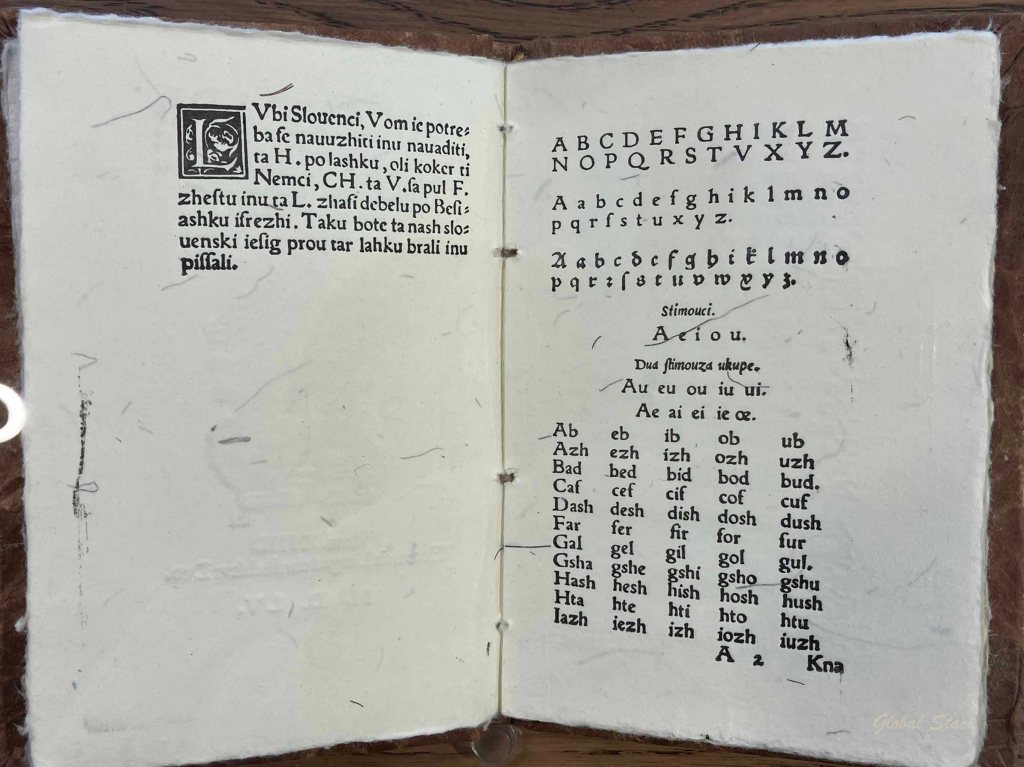 LVbi Slouenci, Vom ie potre⸗
ba ſe nauuzhiti inu nauaditi,
ta H. po lashku, oli koker ti
Nemci, CH. ta V. ſa pul F.
zheſtu inu ta L. zhaſi debelu po Beſi⸗
ashku iſrezhi. Taku bote ta nash slo⸗
uenski ieſig prou tar lahku brali inu
piſſali.
A B C D E F G H I K L M
N O P Q R S T V X Y Z.
A a b c d e f g h i k l m n o
p q r ſ s t u x y z.
A a b c d e f g h i k l m n o
p q r ꝛ ſ s t u v w x y z.
Stimouci.
A e i o u.
Dua ſtimouza ukupe.
Au eu ou iu ui.
Ae ai ei ie œ.
Ab eb ib ob ub
Azh ezh izh ozh uzh
Bad bed bid bod bud.
Caf cef cif cof cuf
Dash desh dish dosh dush
Far fer fir for fur
Gal gel gil gol gul.
Gsha gshe gshi gsho gshu
Hash hesh hish hosh hush
Hta hte hti hto htu
Iazh iezh izh iozh iuzh
A 2 Kna
Global Stack